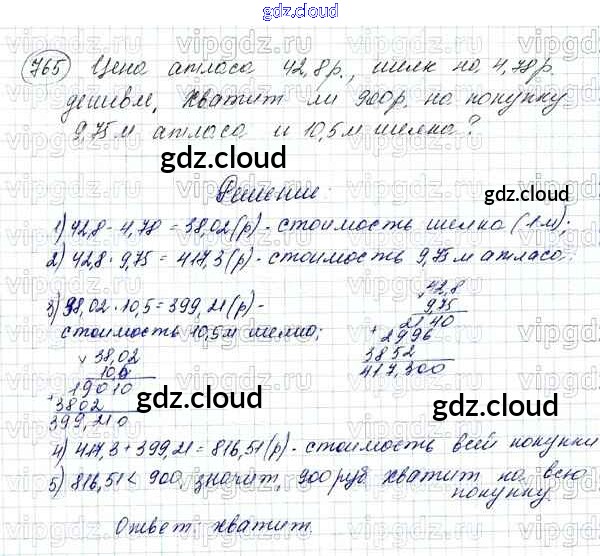 gdz.cloud
765 Цена атласа 42,8р., шелк на 4,78р.
дешевле, хватит ли 900р. на покупку
9,75м атласа и 10,5м шелка?
gdz.cloud
Решение:
1) 42,8 - 4,78 = 38,02(р) - стоимость шелка (1м);
2) 42,8 · 9,75 = 417,3(р) - стоимость 9,75м атласа;
3) 38,02 · 10,5 = 399,21(р) -
стоимость 10,5м шелка;
× 38,02
10,5
19010
+ 3802
399,210
× 42,8
9,75
2140
+ 2996
3852
417,300
gdz.cloud
gdz.cloud
4) 417,3 + 399,21 = 816,51(р) - стоимость всей покупки
5) 816,51 < 900, значит, 900 руб хватит на всю
покупку.
Ответ: хватит
gdz.cloud